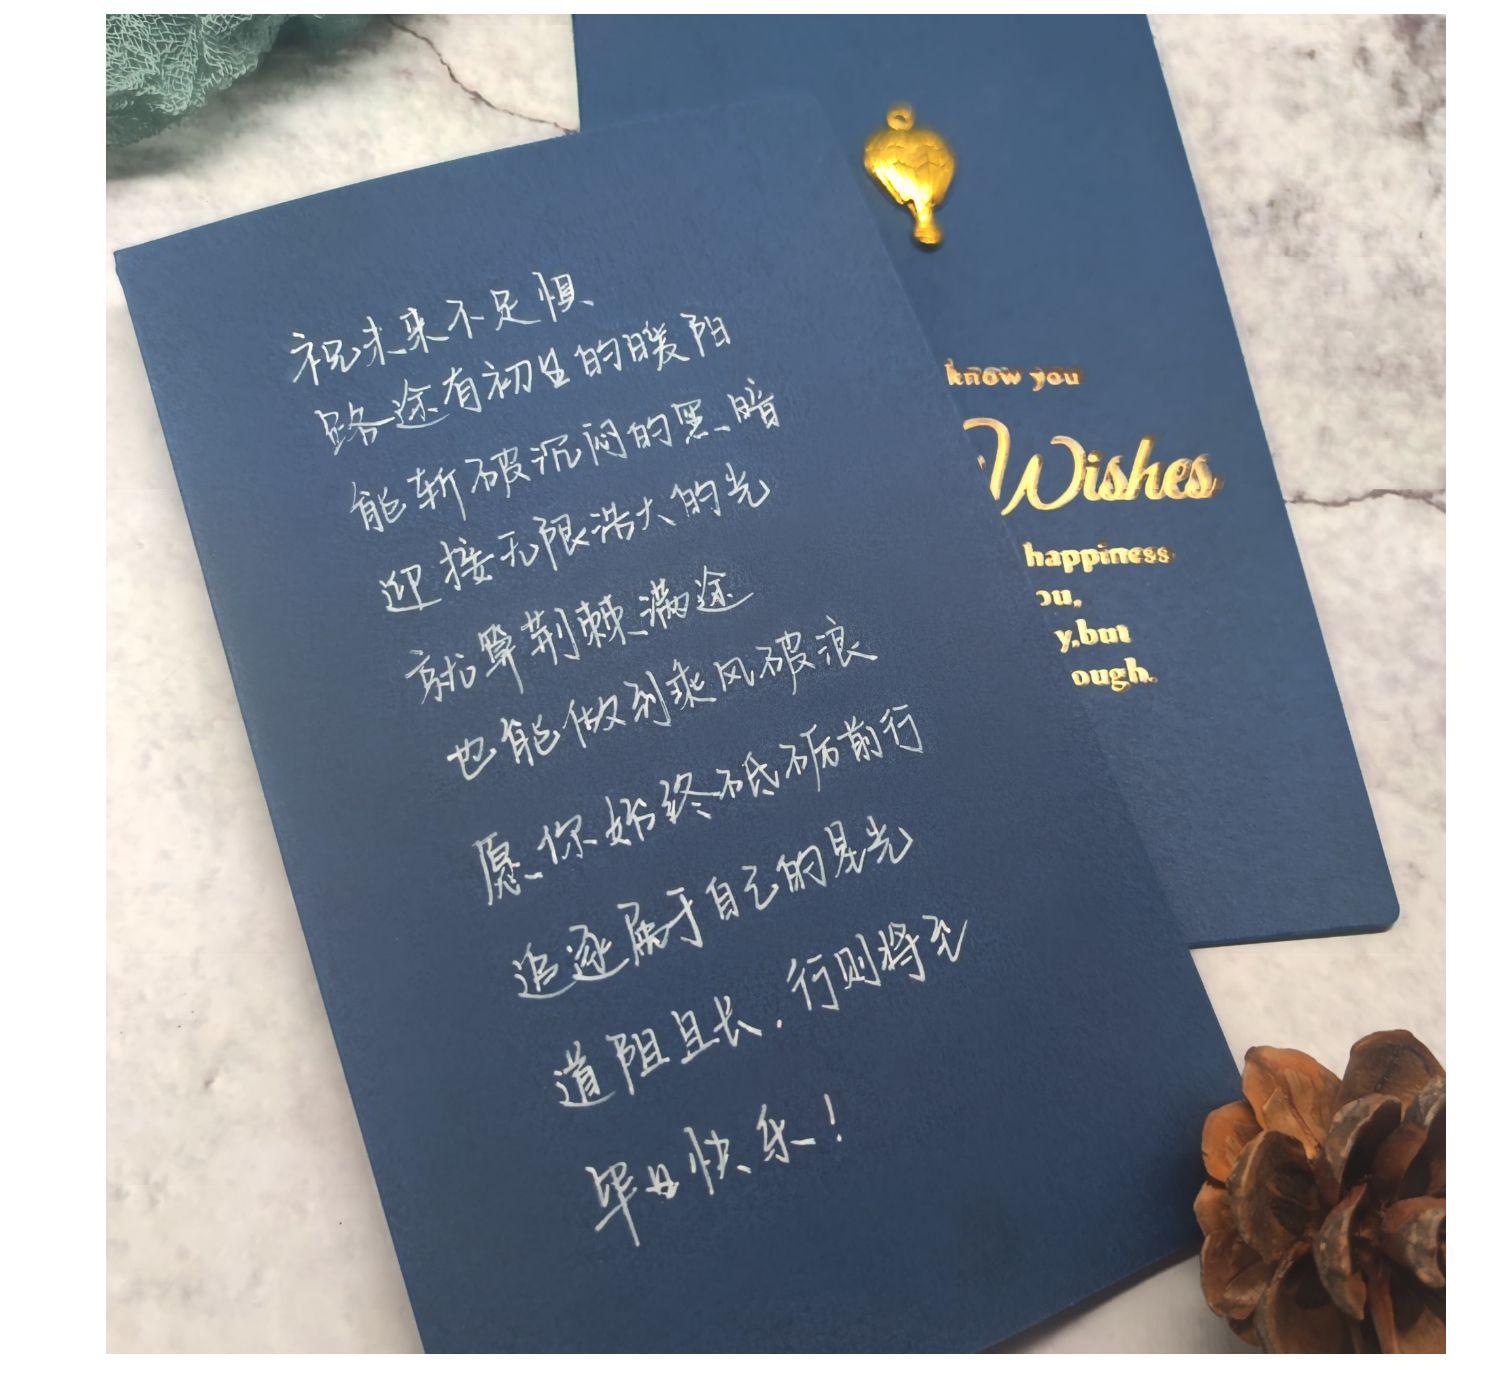 祝未来不足惧
路途有初生的暖阳
能斩破沉闷的黑暗
迎接无限浩大的光
就算荆棘满途
也能做到乘风破浪
愿你始终砥砺前行
追逐属于自己的星光
道阻且长，行则将至
毕业快乐！
know you
Wishes
happiness
ou,
y,but
ough.